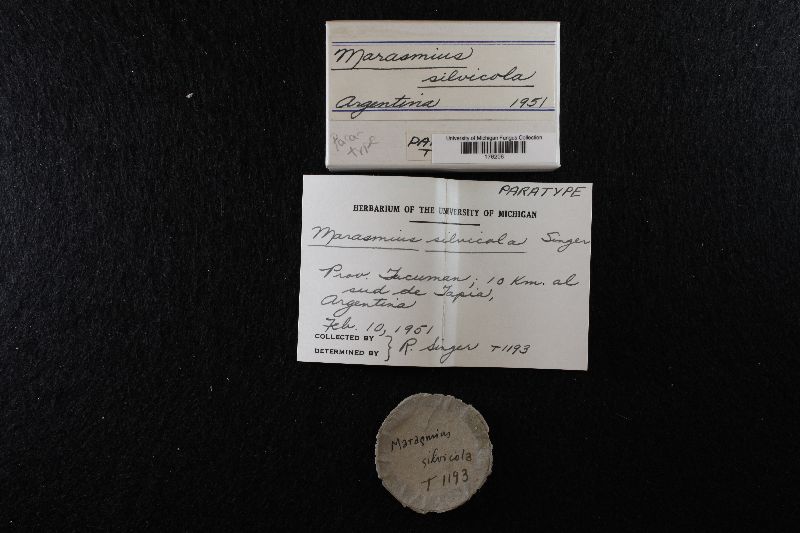 Marasmius
silvicola
Argentina 1951
Para-
type
PA
T
University of Michigan Fungus Collection
PARATYPE
HERBARIUM OF THE UNIVERSITY OF MICHIGAN
Marasmius silvicola Singer
Prov. Tucuman; 10 Km. al
sud de Tapia,
Argentina
Feb. 10, 1951
COLLECTED BY
DETERMINED BY } R. Singer T1193
Marasmius
silvicola
T 1193